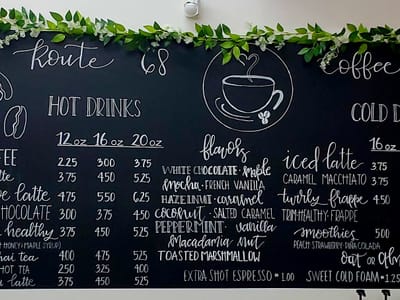 Route 68
Coffee
HOT DRINKS
12 oz 16 oz 20 oz
2.25 3.00 3.75
3.75 4.50 5.25
latte 4.75 5.50 6.25
CHOCOLATE 3.00 3.75 4.50
healthy 3.75 4.50 5.25
HONEY • MAPLE SYRUP)
tea 4.00 4.75 5.50
TEA 2.50 3.25 4.00
flavors
WHITE CHOCOLATE • maple
mocha • FRENCH VANILLA
HAZELNUT • caramel
coconut • SALTED CARAMEL
PEPPERMINT • vanilla
Macadamia Nut
TOASTED MARSHMALLOW
EXTRA SHOT ESPRESSO • 1.00
COLD D
16 oz
iced latte 3.75
CARAMEL MACCHIATO 3.75
turtly frappe 4.50
TRIM HEALTHY FRAPPE
smoothies 5.00
PEACH • STRAWBERRY • PINA COLADA
oat or
SWEET COLD FOAM • 1.25